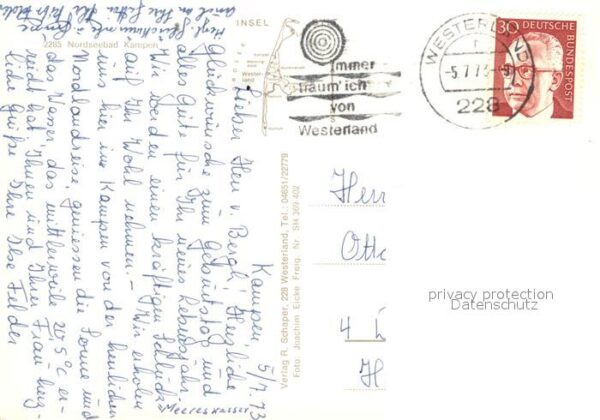 Kampen, 5/7.73
Lieber Herr v. Bergh! Herzliche
Glückwünsche zum Geburtstag und
alles Gute für Ihr neues Lebensjahr.
Wir werden einen kräftigen Schluck
auf Ihr Wohl nehmen. – Wir erholen
uns hier in Kampen von der herrlichen
Nordlandreise, geniessen die Sonne und
das Wasser, das mittlerweile 20,5°C er-
reicht hat. Ihnen und Ihrer Frau herz-
liche Grüße Ihre Ilse Felder
Meereswasser
Herzl. Glückwünsche
auch an Ihre
2285 Nordseebad Kampen
INSEL
Wester-
land
Immer
träum' ich
von
Westerland
WESTERLAND
-5.7.73-
228
30 DEUTSCHE
BUNDESPOST
Verlag R. Schaper, 228 Westerland, Tel.: 04651/22779
Foto Joachim Eicke Freig. Nr SH 369/402
Herr
Otto
4
H
privacy protection
Datenschutz